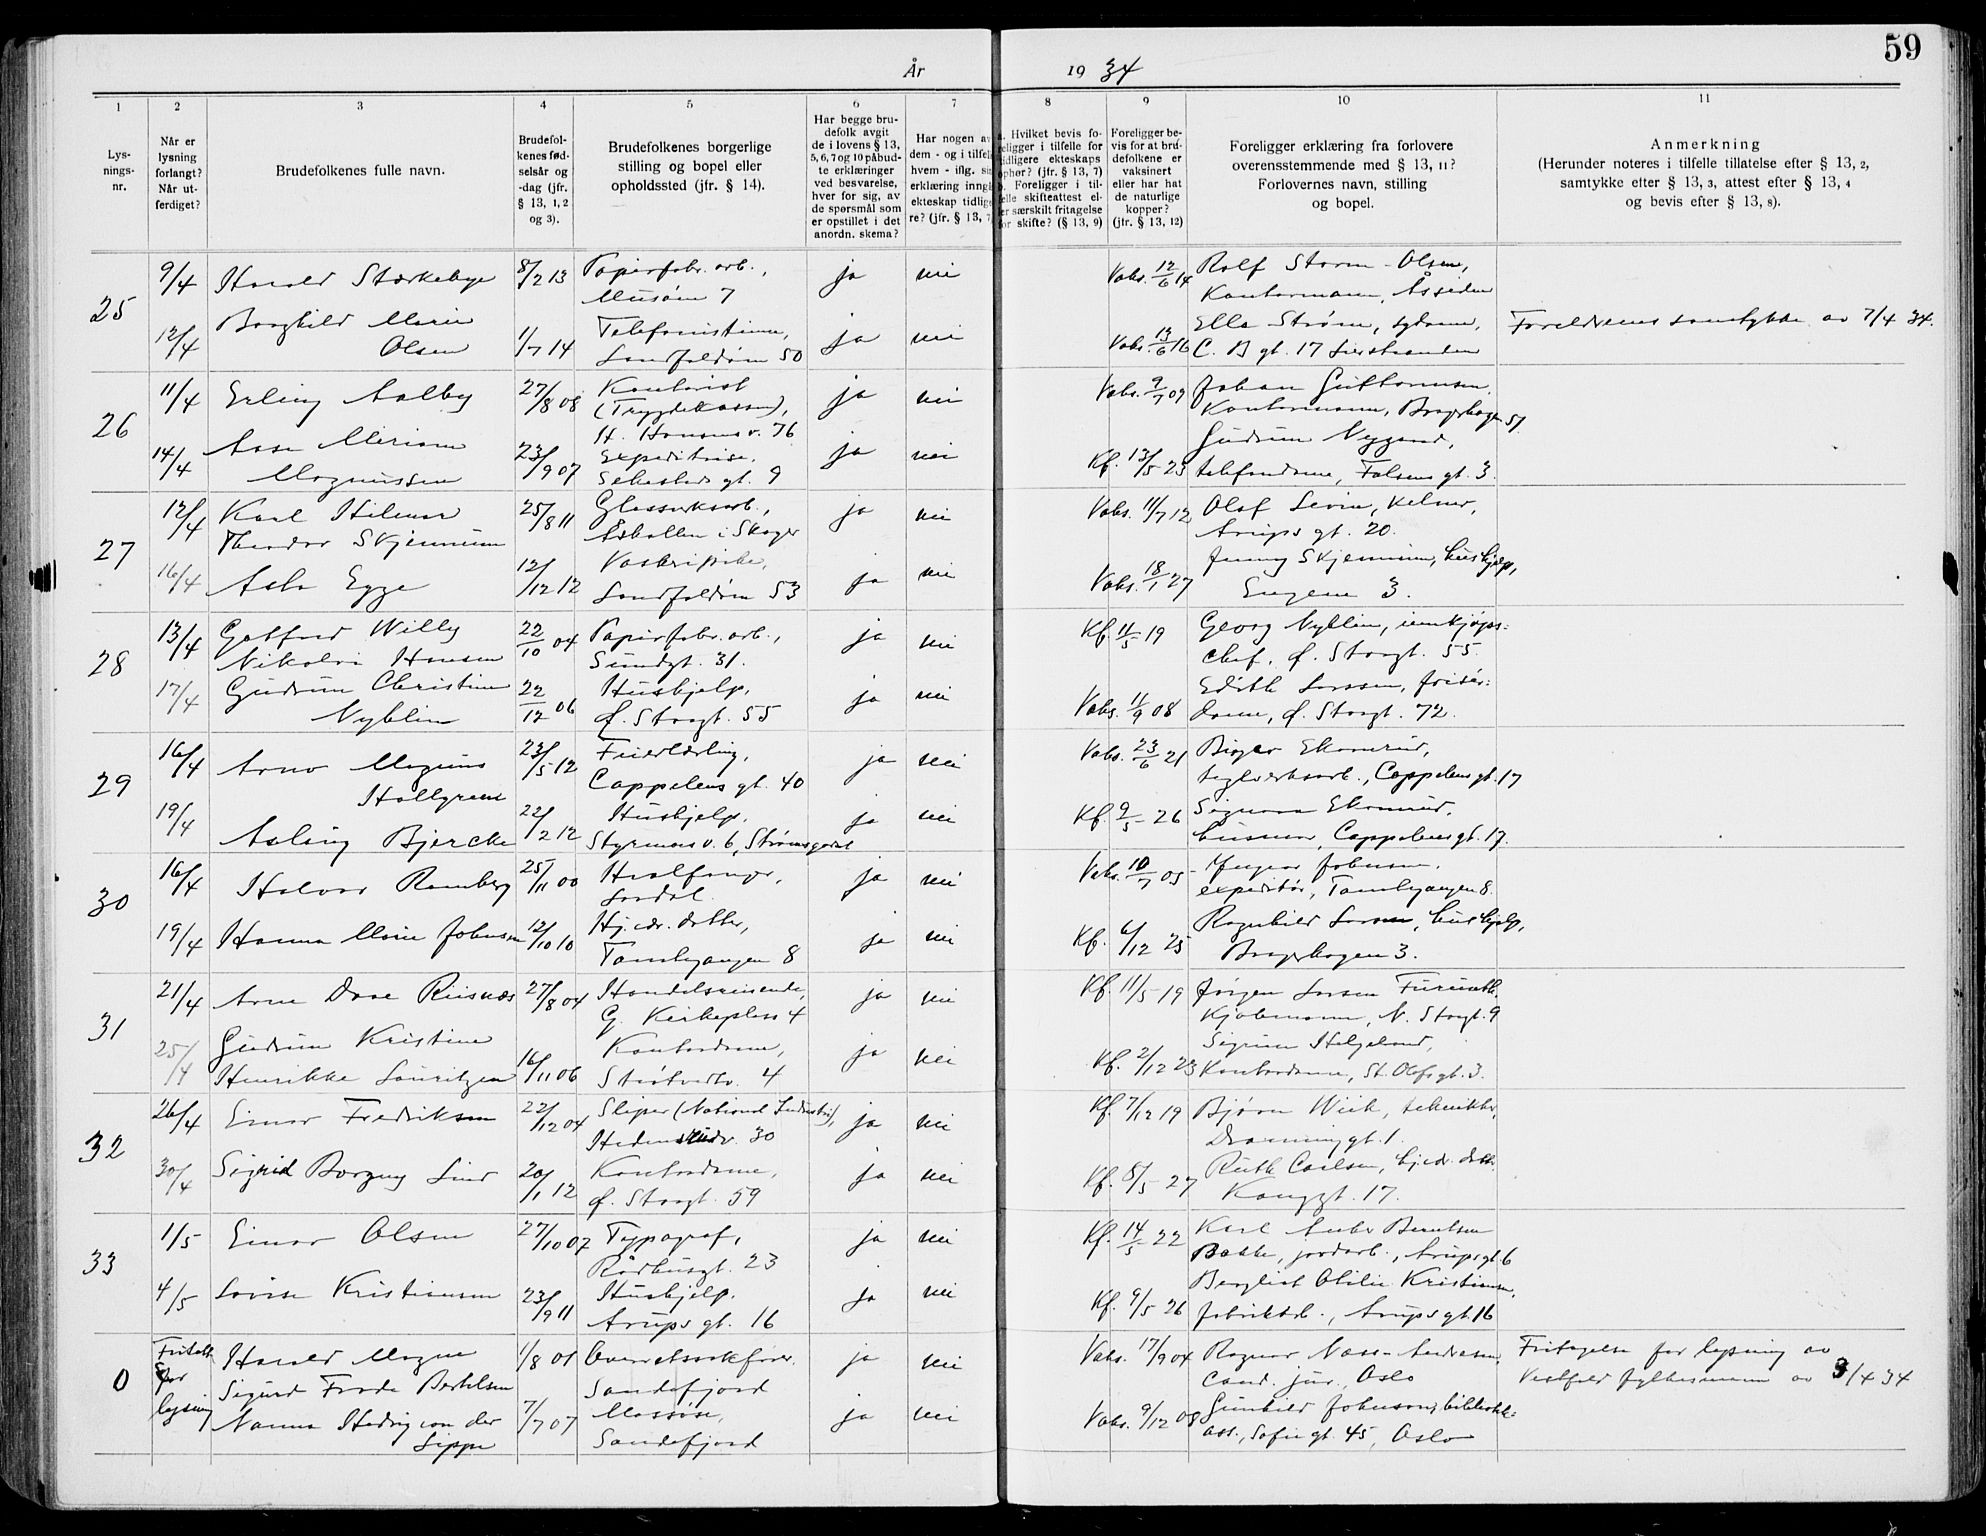 59
År 19 34
1 2 3 4 5 6 7 8 9 10 11
Lys-
nings-
nr.
Når er
lysning
forlangt?
Når ut-
ferdiget?
Brudefolkenes fulle navn.
Brudefol-
kenes fød-
selsår og
-dag (jfr.
§ 13, 1, 2
og 3).
Brudefolkenes borgerlige
stilling og bopel eller
opholdssted (jfr. § 14).
Har begge bru-
defolk avgit
de i lovens § 13,
5, 6, 7 og 10 påbud-
te erklæringer
ved besvarelse,
hver for sig, av
de spørsmål som
er opstillet i det
anordn. skema?
Har nogen av
dem - og i tilfelle
hvem - iflg. sin
erklæring inngå
ekteskap tidlige
re? (jfr. § 13, 7
a. Hvilket bevis fo-
religger i tilfelle for
tidligere ekteskaps
ophør? (jfr. § 13, 7)
b. Foreligger i til-
felle skifteattest el-
er særskilt fritagelse
for skifte? (§ 13, 9)
Foreligger be-
vis for at bru-
defolkene er
vaksinert
eller har hat
de naturlige
kopper?
(jfr. § 13, 12)
Foreligger erklæring fra forlovere
overensstemmende med § 13, 11?
Forlovernes navn, stilling
og bopel.
Anmerkning
(Herunder noteres i tilfelle tillatelse efter § 13, 2,
samtykke efter § 13, 3, attest efter § 13, 4
og bevis efter § 13, 8).
25
9/4 Harald Stærkebye 8/2 13 Papirfabr. arb., ja nei Vaks. 12/6 14 Rolf Storm-Olsen,
Kontormann, Åssiden
12/4 Borghild Marie
Olsen 1/7 14 Telefonistinne,
50 ja nei Vaks. 13/6 16 Ella Strøm, sydame,
C. B gt. 17 Lierstranden
Foreldrenes samtykke av 7/4 34.
26
11/4 Erling Aalby 27/8 08 Kontorist
(Trygdekassen),
H. Hansens v. 76 ja nei Vaks. 9/7 09 Johan Guttormsen,
Kontormann, Bragerhagen 51
14/4 Aase Miriam
Magnussen 23/9 07 Expeditrise,
gt. 9 ja nei Kf. 13/5 23 Gudrun Nygaard,
telefondame, Falsens gt. 3.
27
12/4 Karl Hilmar
Theodor Skjennum 25/8 11 Glassverksarb.,
Åskollen i Skoger ja nei Vaks. 11/7 12 Olaf Levin, kelner,
Arups gt. 20.
16/4 Asta Egge 12/12 12 Vaskeripike,
53 ja nei Vaks. 18/1 27 Jenny Skjennum, hushjelp,
Eugene 3.
28
13/4 Gotfred Willy
Nikolai Hansen 22/10 04 Papirfabr. arb.,
Sundgt. 31. ja nei Kf. 11/5 19 Georg Nyblin, innkjøps-
chef, Ø. Storgt. 55.
17/4 Gudrun Christine
Nyblin 22/12 06 Hushjelp,
Ø. Storgt. 55 ja nei Vaks. 11/9 08 Edith Larssen, frisør-
dame, Ø. Storgt. 72.
29
16/4 Arno Magnus
Hallgrens 23/5 12 Feierlærling,
Cappelens gt. 40 ja nei Vaks. 23/6 21 Birger Ekornrud,
teglverksarb., Cappelens gt. 17
19/4 Aslaug Bjercke 22/2 12 Hushjelp,
Styrmoes v. 6, Strømsgodset ja nei Kf. 9/5 26 Signora Ekornrud,
husmor, Cappelens gt. 17.
30
16/4 Halvor Ramberg 25/11 00 Hvalfanger,
ja nei Vaks. 10/7 05 Yngvar Johnsen,
expeditør, Tamburgangen 8.
19/4 Hanna Marie Johnsen 12/10 10 Hj.vær. datter,
Tamburgangen 8 ja nei Kf. 6/12 25 Ragnhild Larsen, hushjelp,
Bragerhagen 3.
31
21/4 Arne Dave Riisnæs 27/8 04 Handelsreisende,
G. Kirkeplass 4 ja nei Kf. 11/5 19 Jørgen Larsen Furuseth
Kjøbmann, N. Storgt. 9
25/4 Gudrun Kristine
Henrikke Lauritzen 16/11 06 Kontordame,
4 ja nei Kf. 2/12 23 Sigrun Helgeland,
Kontordame, St. Olafsgt. 3.
32
26/4 Einar Fredriksen 22/12 04 Sliper (National Industri),
30 ja nei Kf. 7/12 19 Bjørn Wiik, tekniker,
Dronninggt. 1.
30/4 Sigrid Borgny Lind 20/1 12 Kontordame,
Ø. Storgt. 59 ja nei Kf. 8/5 27 Ruth Carlsen, hj.vær. datt.
Konggt. 17.
33
1/5 Einar Olsen 27/10 07 Typograf,
Rådhusgt. 23 ja nei Kf. 14/5 22 Karl Berntsen
Bakke, jordarb., Arups gt 6
4/5 Lovise Kristiansen 23/9 11 Hushjelp,
Arups gt. 16 ja nei Kf. 9/5 26 Bergliot Otilie Kristiansen,
fabrikarb., Arups gt. 16
0
Fritatt
for
lysning
Harald Magne
Sigurd Frode Bertelsen 1/8 01 Overretssakfører,
Sandefjord ja nei Vaks. 17/9 04 Ragnar Næss-Andresen,
Cand. jur., Oslo
Fritagelse for lysning av
Vestfold fylkesmann av 3/4 34
Nanna Hedvig von der
Lippe 7/7 07 Massøse,
Sandefjord ja nei Vaks. 9/12 08 Gunhild Johnson, bibliotek-
ass., Sofies gt. 45, Oslo